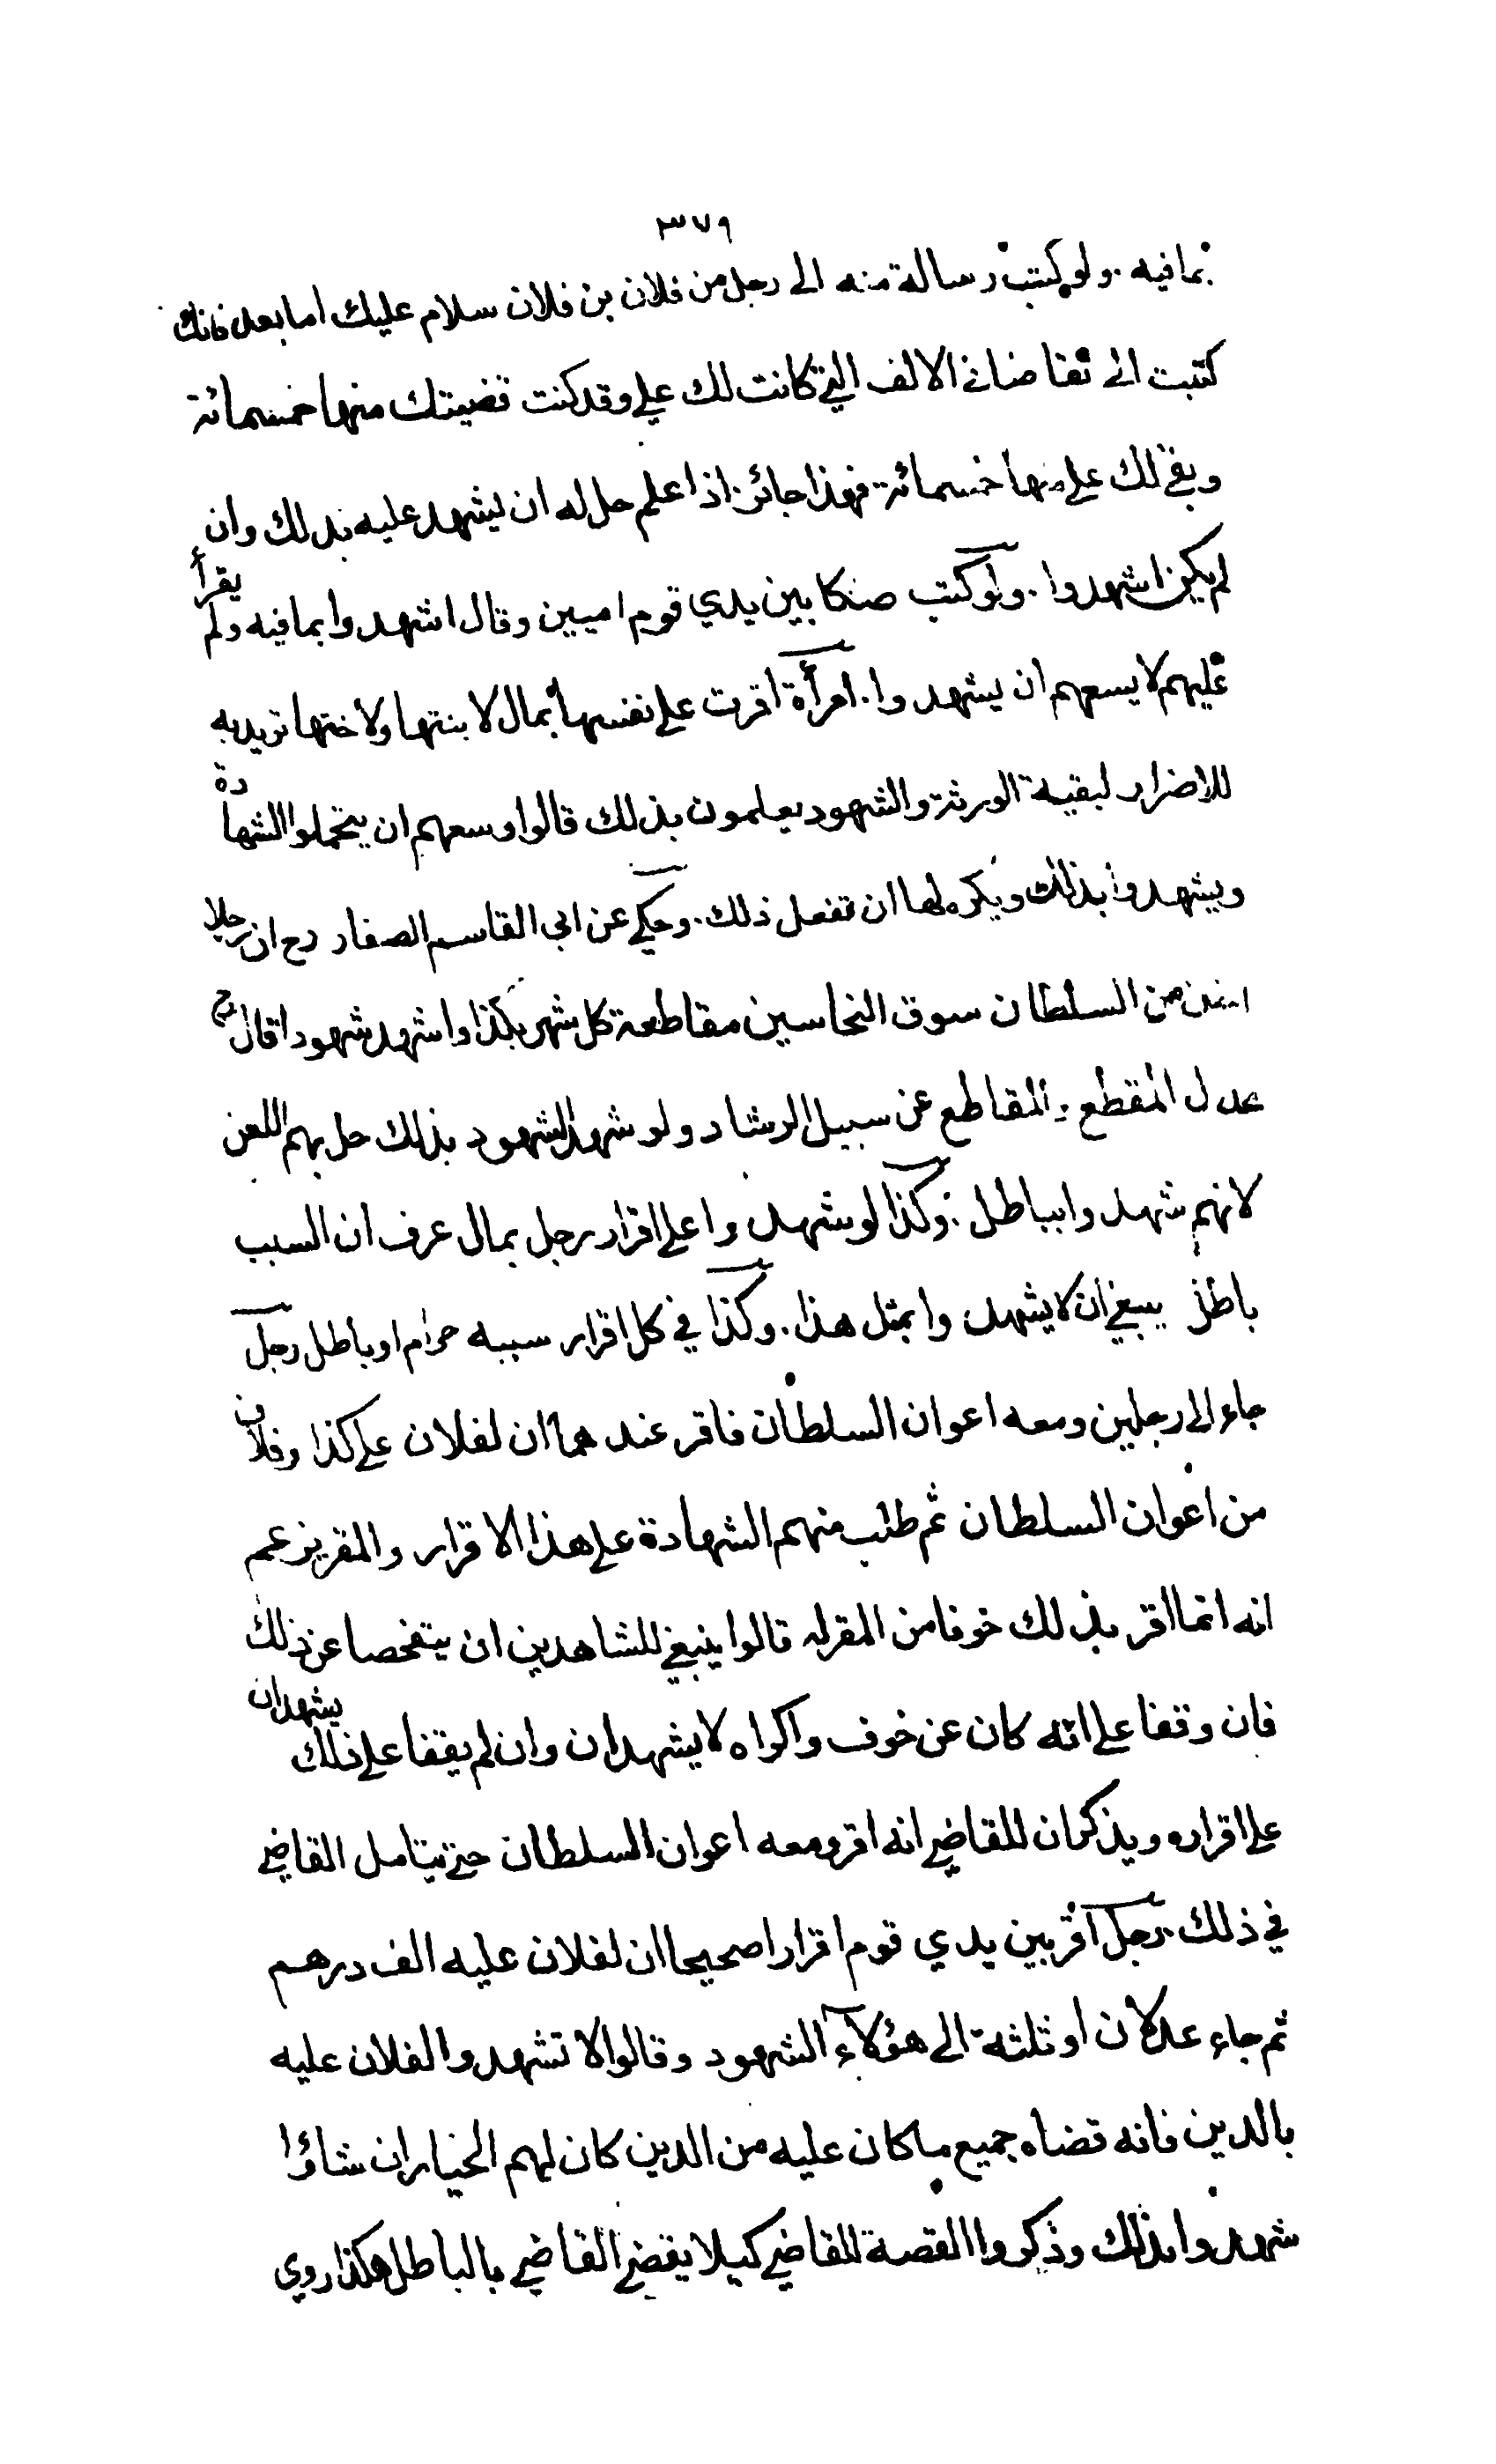 ٣٧٩
بما فيه . ولو كتب رسالة منه الى رجل من فلان بن فلان سلام عليك اما بعد فانك
كتبت الى تقاضاني الالف التي كانت لك علي وقد كنت قضيتك منها خمسمائة
وبقي لك علي منها خمسمائة فهذا جائز . اذا علم حل له ان يشهد عليه بذلك وان
لم يكن اشهدوا . ولو كتب صكا بين يدي قوم اميين وقال اشهدوا بما فيه ولم يقرأ
عليهم لا يسعهم ان يشهدوا . امرأة اقرت على نفسها بمال لابنتها ولاختها تريد به
للاضرار لبقية الورثة والشهود يعلمون بذلك قالوا وسعهم ان يتحملوا الشهادة
ويشهدوا بذلك ويكره لها ان تفعل ذلك . وحكي عن ابي القاسم الصفار رح ان رجلا
من السلطان سوق النخاسين مقاطعة كل شهر بكذا واشهد شهودا قال رح
عدل المقطع والمقاطع عن سبيل الرشاد ولو شهد الشهود بذلك حل بهم اللعن
لانهم شهدوا بباطل . وكذا لو شهدوا على اقرار رجل بمال عرف ان السبب
باطل ينبغي ان لا يشهدوا بمثل هذا . وكذا في كل اقرار سببه حرام او باطل رجل
جاء الى رجلين ومعه اعوان السلطان فاقر عندهما ان لفلان علي كذا وفلان
من اعوان السلطان ثم طلب منهم الشهادة على هذا الاقرار والمقر يزعم
انه انما اقر بذلك خوفا من المقر له قالوا ينبغي للشاهدين ان يتفحصا عن ذلك
فان وقفا على انه كان عن خوف واكراه لا يشهدان وان لم يقفا على ذلك يشهدان
على اقراره ويذكران للقاضي انه اقر ومعه اعوان السلطان حتى يتامل القاضي
في ذلك . رجل اقر بين يدي قوم اقرارا صحيحا ان لفلان عليه الف درهم
ثم جاء عدلان او ثلثة الى هؤلاء الشهود وقالوا لا تشهدوا لفلان عليه
بالدين فانه قضاه جميع ما كان عليه من الدين كان لهم الخيار ان شاؤا
شهدوا بذلك وذكروا القصة للقاضي كيلا يقضي القاضي بالباطل هكذا روي